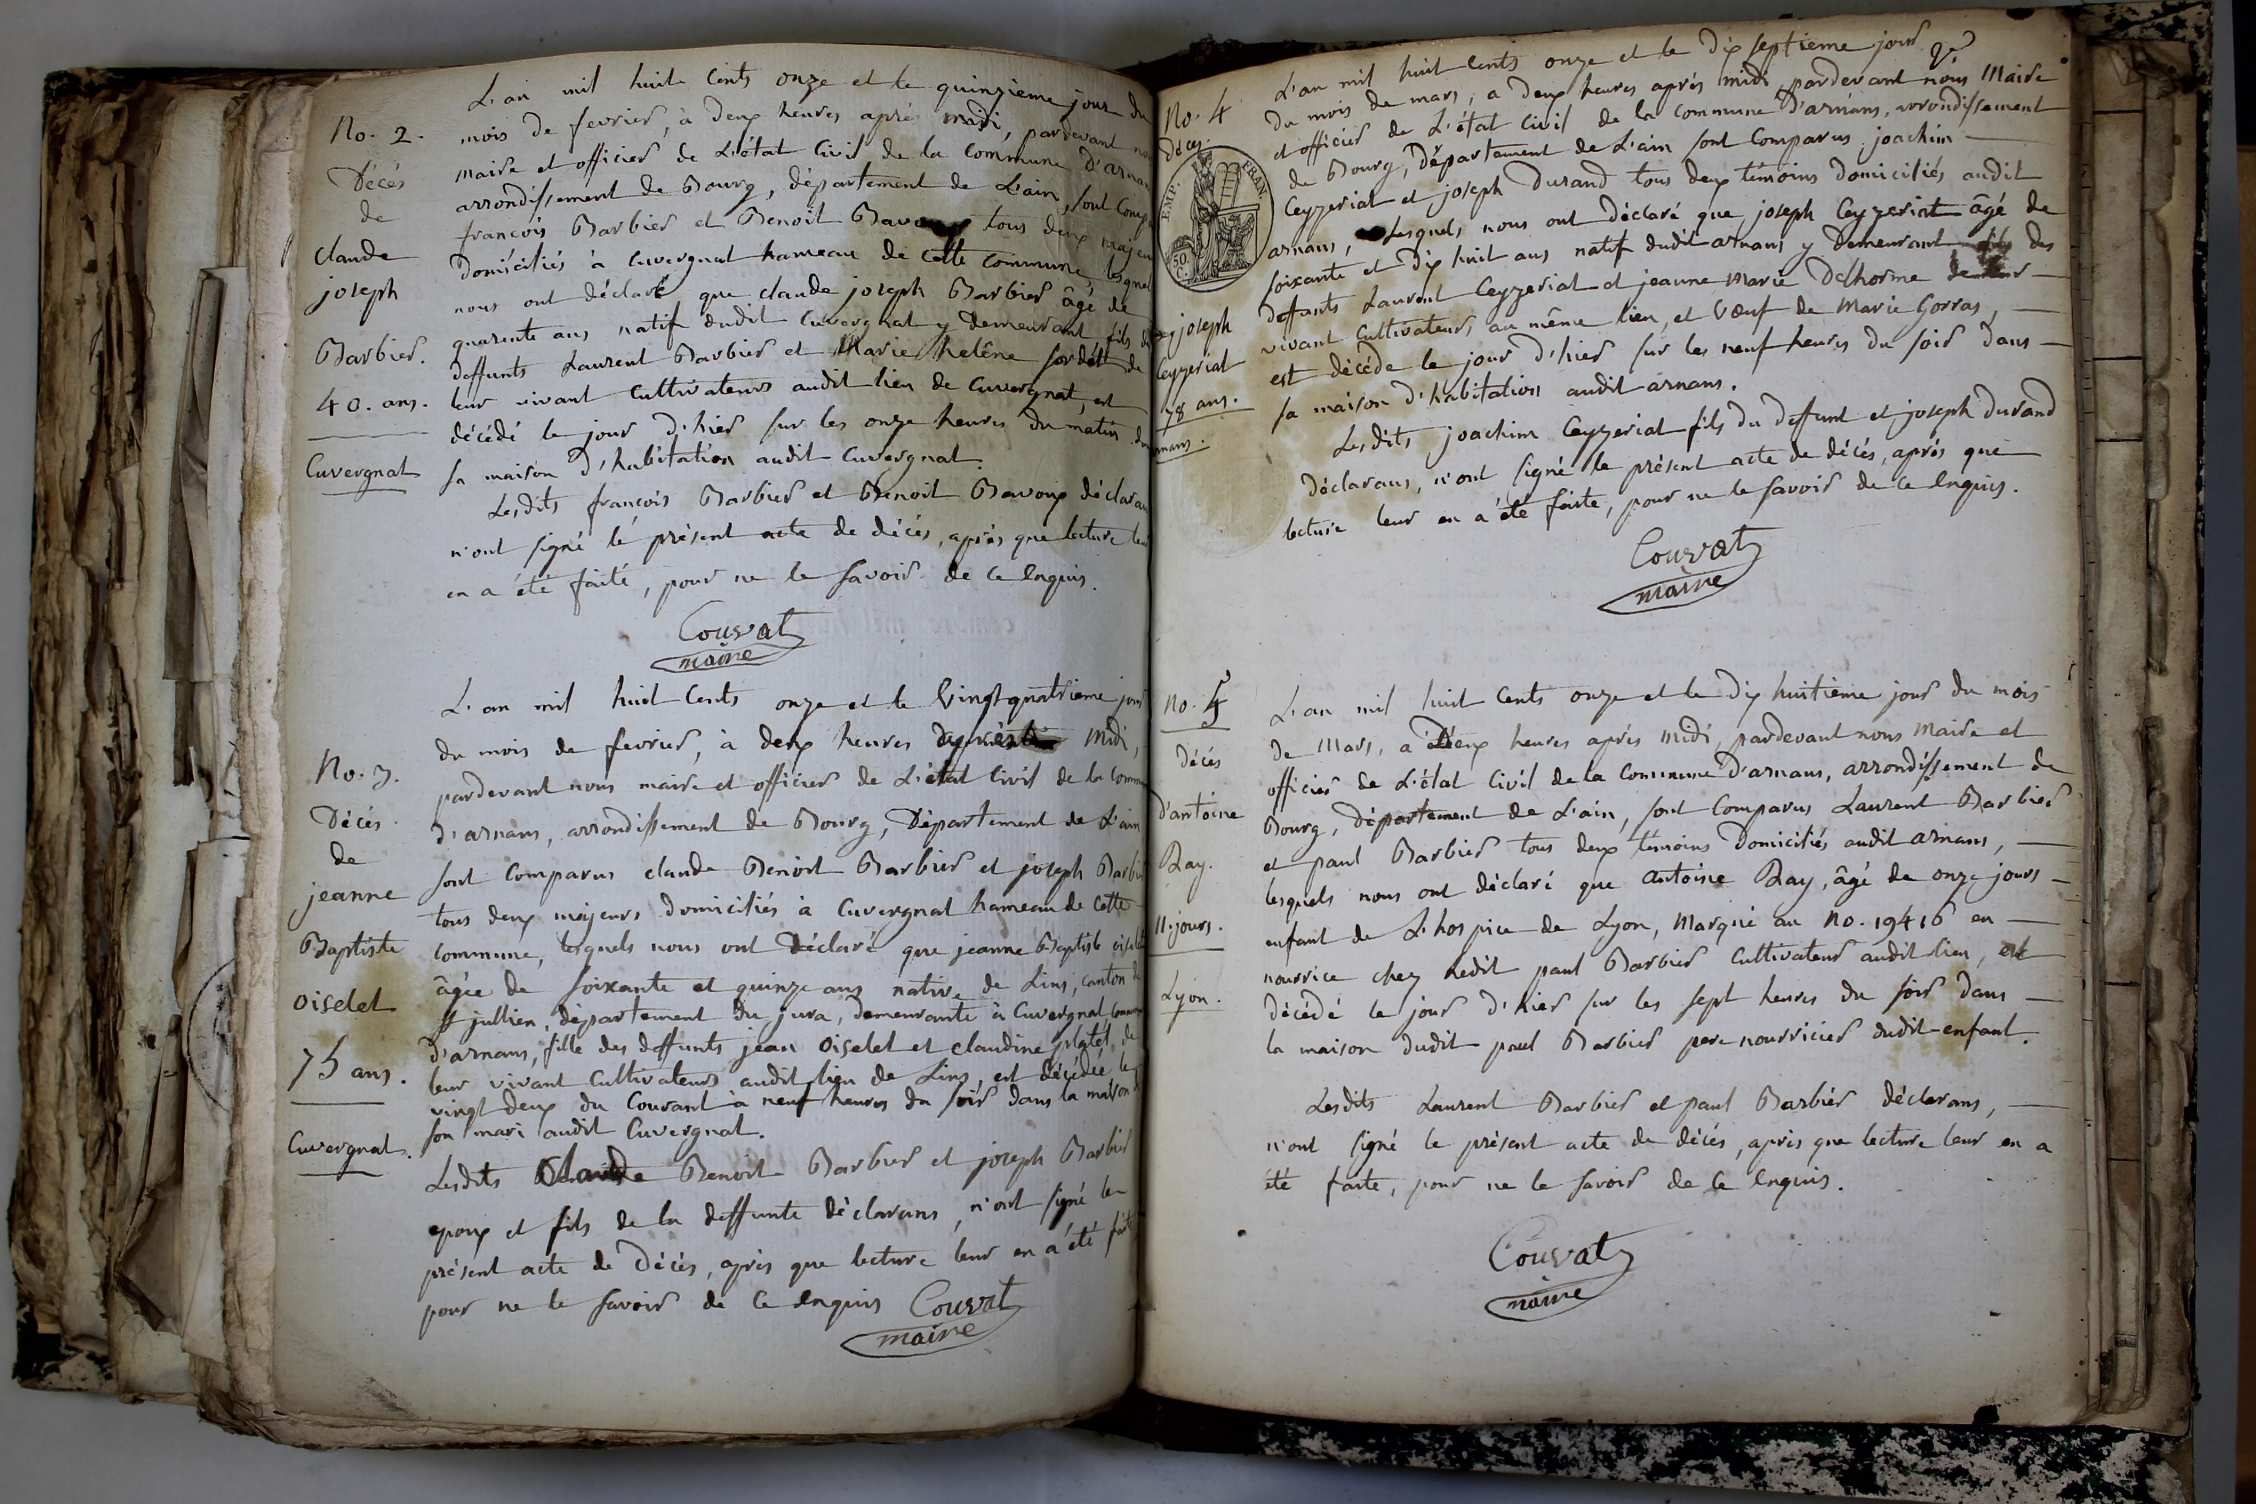 No. 2.
Décés
de
claude
joseph
Barbier.
40. ans.
Cuvergnat
L'an mil huit Cents onze et le quinzieme jour du
mois de fevrier, à deux heures aprés midi, pardevant
maire et officier de L'état Civil de la Commune D'arnans
arrondissement de Bourg, département de L'ain, sont
francois Barbier et Benoit Bavoux tous deux majeurs
Domiciliés à Cuvergnat hameau de cette Commune, lesquels
nous ont déclaré que claude joseph Barbier âgé de
quarente ans natif dudit Cuvergnat y demeurant fils
deffunts Laurent Barbier et Marie helêne de
leur vivant Cultivateurs audit lieu de Cuvergnat, est
décédé le jour d'hier sur les onze heures du matin
sa maison d'habitation audit Cuvergnat.
Lesdits francois Barbier et Benoit Bavoux
n'ont signé le présent acte de décés, aprés que lecture
en a été faite, pour ne le savoir de ce Enquis.
Couvat
maire
No. 3.
Décés
de
jeanne
Baptiste
oiselet
75 ans.
Cuvergnat.
L'an mil huit Cents onze et le Vingt quatrieme jour
du mois de fevrier, à deux heures aprés midi,
pardevant nous maire et officier de L'état Civil de la
d'arnans, arrondissement de Bourg, Département de L'ain
sont Comparus claude Benoit Barbier et joseph Barbier
tous deux majeurs domiciliés à Cuvergnat hameau de cette
Commune, lesquels nous ont déclaré que jeanne Baptiste
âgée de soixante et quinze ans native de Lins, canton de
st jullien, département du jura, demeurante à Cuvergnat
d'arnans, fille des deffunts jean oiselet et claudine de
leur vivant Cultivateurs audit lieu de Lins, est décédée le
vingt deux du Courant à neuf heures du soir dans la maison
son mari audit Cuvergnat.
Lesdits Claude Benoit Barbier et joseph Barbier
epoux et fils de la deffunte déclarans, n'ont signé le
présent acte de Décés, aprés que lecture leur en a été
pour ne le savoir de ce Enquis Couvat
maire
No. 4
décés
EMP. FRAN.
50.
C.
joseph
Ceyzeriat
78 ans.
L'an mil huit Cents onze et le Dix septieme jour
du mois de mars, a deux heures aprés midi, pardevant nous Maire
et officier de L'état Civil de la Commune D'arnans, arrondissement
de Bourg, Département de L'ain sont Comparus joachim
Ceyzeriat et joseph Durand tous deux témoins Domiciliés audit
arnans, Lesquels nous ont Déclaré que joseph Ceyzeriat âgé de
soixante et dix huit ans natif dudit arnans y demeurant fils des
deffunts Laurent Ceyzeriat et jeanne Marie Délhorme de leur
vivant Cultivateurs au même lieu, et Vœuf de Marie Gorras,
est décédé le jour d'hier sur les neuf heures du soir dans
sa maison d'habitation audit arnans.
Lesdits joachim Ceyzeriat fils du deffunt et joseph Durand
Déclarans, n'ont signé le présent acte de décés, aprés que
lecture leur en a été faite, pour ne le savoir de ce Enquis.
Couvat
maire
No. 5
Décés
D'antoine
Ray.
11. jours.
Lyon.
L'an mil huit Cents onze et le Dix huitième jour du mois
de Mars, a deux heures aprés midi, pardevant nous Maire et
officier de L'état Civil de la Commune D'arnans, arrondissement de
Bourg, département de L'ain, sont Comparus Laurent Barbier
et paul Barbier tous deux témoins Domiciliés audit arnans,
lesquels nous ont déclaré que antoine Ray, âgé de onze jours
enfant de L'hospice de Lyon, Marqué au No. 19416 en
nourrice chez ledit paul Barbier Cultivateur audit lieu, est
décédé le jour d'hier sur les sept heures du soir dans
la maison dudit paul Barbier pere nourricier dudit enfant.
Lesdits Laurent Barbier et paul Barbier déclarans,
n'ont signé le présent acte de décés, aprés que lecture leur en a
été faite, pour ne le savoir de ce Enquis.
Couvat
maire